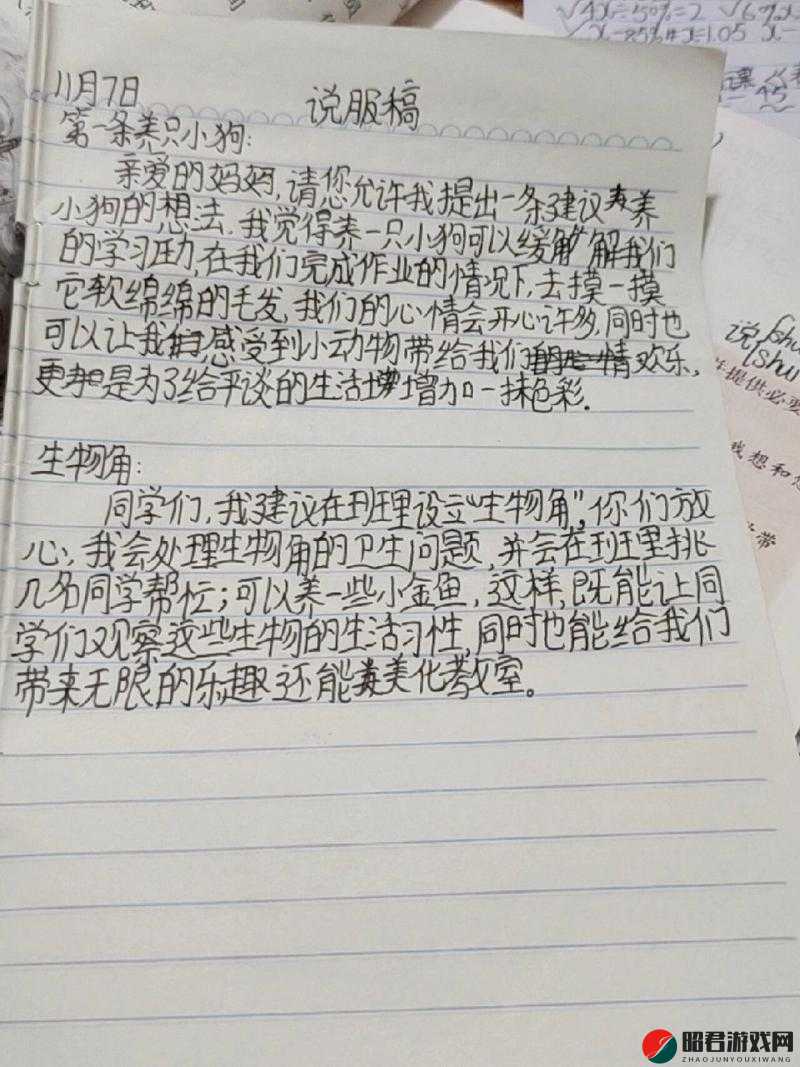 √4x÷50%=2 √6%x
√x-85%x=1.05 x-
11月7日 说服稿
第一条养只小狗:
亲爱的妈妈,请您允许我提出一条建议养
小狗的想去.我觉得养一只小狗可以缓解我们
的学习压力,在我们完成作业的情况下,去摸一摸
它软绵绵的毛发,我们的心情会开心许多,同时也
可以让我们感受到小动物带给我们欢乐,
更是为了给平谈的生活增加一抹色彩.
生物角:
同学们,我建议在班里设立“生物角”,你们放
心,我会处理生物角的卫生问题,并会在班里挑
几名同学帮忙;可以养一些小金鱼,这样,既能让同
学们观察这些生物的生活习性,同时也能给我们
带来无限的乐趣还能美化教室。
说
提供必要
我想和您
昭君游戏网
ZHAOJUNYOUXIWANG